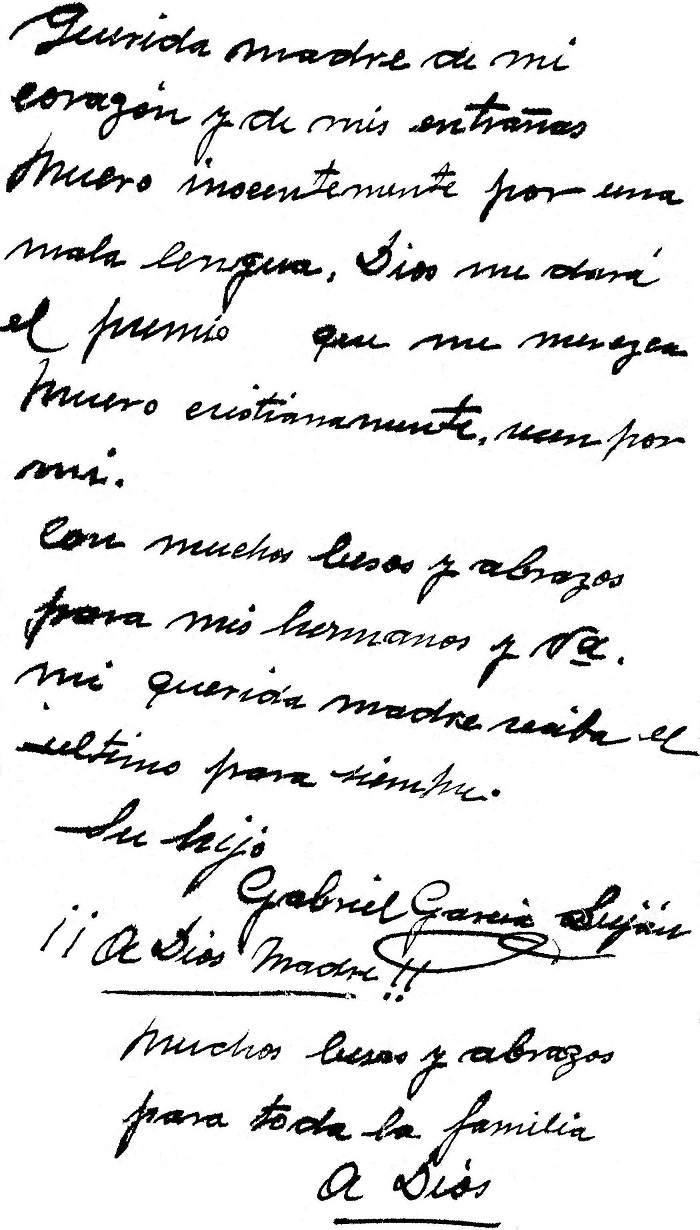 Querida madre de mi
corazón y de mis entrañas
Muero inocentemente por una
mala lengua. Dios me dará
el premio que me merezca
Muero cristianamente, recen por
mi.
Con muchos besos y abrazos
para mis hermanos y Vª.
mi querida madre reciba el
último para siempre.
Su hijo
Gabriel García Luján
¡¡A Dios Madre!!
Muchos besos y abrazos
para toda la familia
A Dios